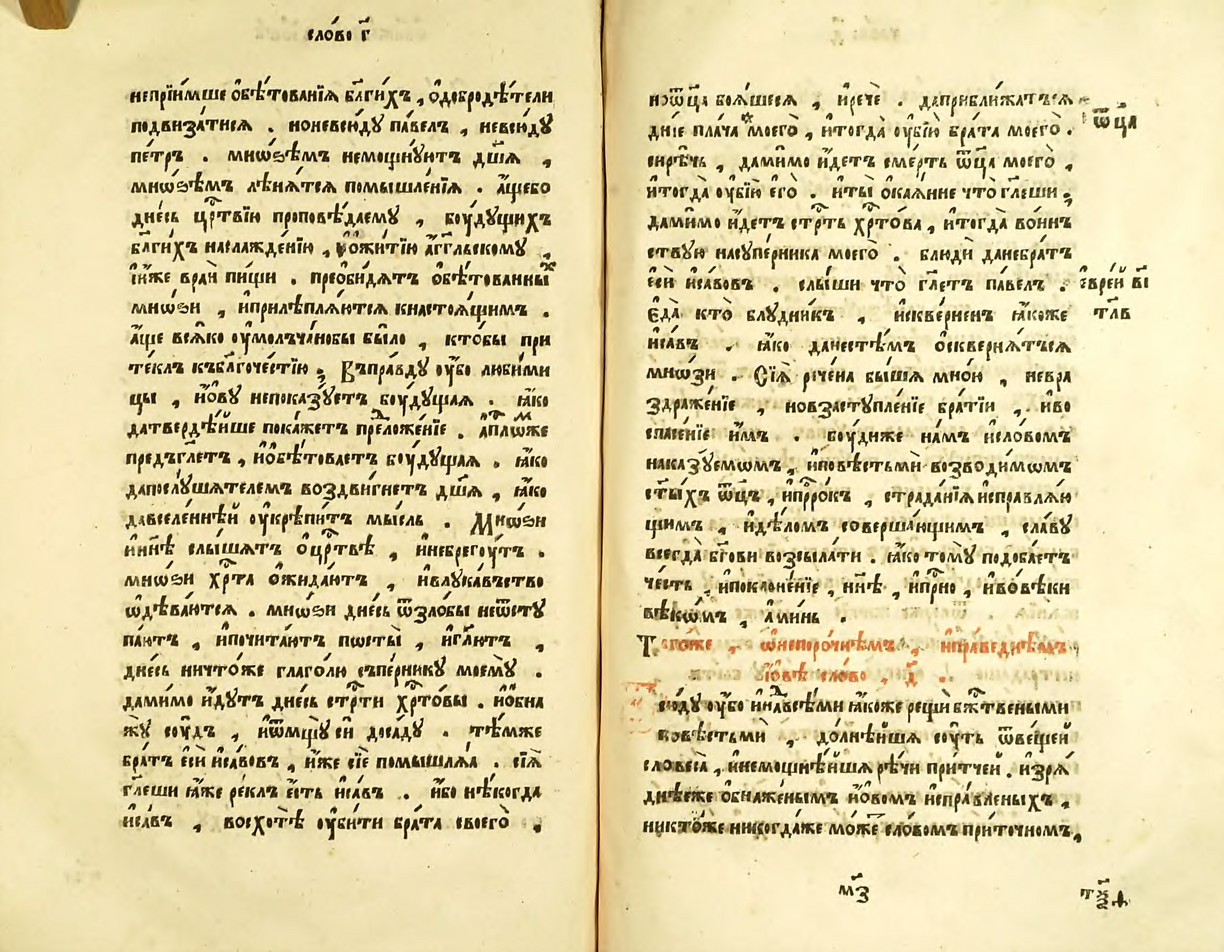 сло́во г҃
непрїи́мше ѡ҆бѣ́тованїѧ бл҃ги́хъ , ѻ҆добродѣ́тели
подвиза́тисѧ . ноневсѝдꙋ па́велъ , невсѝдꙋ
пе́тръ . мно́ѕѣмъ немощнꙋю́тъ дш҃ѧ ,
мно́ѕѣмъ лѣнѧ́тсѧ помышле́нїѧ . а҆́щебо
дне́сь црⷭ҇твїю проповѣ́даемꙋ , бꙋ́дꙋщихъ
бл҃ги́хъ наслажде́нїю , ѻ҆житїю̀ а҆́гг҃льскомꙋ ,
и҆́иже вра́и пи́щи . преоби́дѧтъ ѡ҆бѣ́тованныⷯ
мно́ѕи , и҆прилѣплѧ́ютсѧ кнастоѧ́щимъ .
а҆́ще всѧ́ко ᲂу҆молча́нобы бы́ло , кто́бы при
те́клъ къбл҃гоче́стїю ; Въпра́вдꙋ ᲂу҆́бо люби́ми
цы , и҆́ѡвꙋ непоказꙋ́етъ бꙋ́дꙋщаѧ . ꙗ҆́ко
датвердѣ́йше пока́жетъ преⷣложе́нїе . а҆пⷭ҇лѡмⷨже
предъгл҃етъ , и҆ѻ҆бѣ́товаетъ бꙋ́дꙋщаѧ . ꙗ҆́ко
дапослꙋ́шателемъ воздви́гнетъ дш҃ѧ , ꙗ҆́ко
давселе́ннѣй ᲂу҆крѣпи́тъ мы́сль . Мно́ѕи
и҆нн҃ѣ слы́шатъ ѻ҆црⷭ҇твѣ , и҆небрегꙋ́тъ .
мно́ѕи хрⷭ҇та ѻ҆жида́ютъ , и҆влꙋка́въство
ѡ҆дѣва́ютсѧ . мно́ѕи дне́сь ѿзло́бы неѿстꙋ
па́ютъ , и҆почита́ютъ посты̀ , и҆гл҃ютъ ,
дне́сь ничто́же глаго́лю съпе́рникꙋ моемꙋ̀ .
дами́мо и҆́дꙋтъ дне́сь стрⷭ҇ти хрⷭ҇то́вы . и҆ѻ҆бна
жꙋ̀ сꙋ́дъ , и҆ѿмщꙋ̀ си досадꙋ . тѣ́мже
бра́тъ є҆сѝ и҆са́вовъ , и҆́же сїѐ помышлѧ́ѧ . сїѧ̀
гл҃еши ꙗ҆́же ре́клъ є҆́сть и҆са́въ . и҆́бо нѣ́когда
и҆са́въ , восхотѣ̀ ᲂу҆би́ти бра́та своего̀ ,
нѻ҆ѿц҃а боѧ́шесѧ , и҆речѐ . даприближа́тъсѧ
дні́е пла́ча * моего̀ , и҆тогда̀ ᲂу҆бїю̀ бра́та моего̀ .
ѿц҃а
си́рѣчь , дами́мо и҆́детъ сме́рть ѿц҃а моего̀ ,
и҆тогда̀ ᲂу҆бїю̀ є҆го̀ . и҆ты̀ ѻ҆каѧ́нне что̀ гл҃еши ;
дами́мо и҆́детъ стрⷭ҇ть хрⷭ҇то́ва , и҆тогда̀ во́инъ
ствꙋю насꙋпе́рника моего̀ . блюдѝ данебра́тъ
є҆сѝ и҆са́вовъ . слы́ши что̀ гл҃етъ па́велъ .
є҆вре́й вi
Є҆да̀ кто̀ блꙋ́дникъ , и҆скве́рненъ ꙗ҆́коже
тл҃в
и҆са́въ . ꙗ҆́ко дане́стѣмъ ѻ҆скверня́тъсѧ
мно́зи . Сїѧ̀ рѣче́на бы́шѧ мно́ю , невра
здраже́нїе , новзастꙋпле́нїе бра́тїи , и҆во
спасе́нїе и҆́мъ . бꙋ́диже на́мъ и҆сло́вомъ
наказꙋ́емѡмъ , и҆по́вѣстьми возводи́мѡмъ
ст҃ы́хъ ѿц҃ъ , и҆прⷪ҇ро́къ , страда́нїѧ исправлѧ́ю
щимъ , и҆дѣ́ломъ соверша́ющимъ , сла́вꙋ
всегда̀ бг҃ови возсыла́ти . ꙗ҆́ко томꙋ̀ подоба́етъ
че́сть , и҆поклоне́нїе , нн҃ѣ , и҆при́сно , и҆вовѣ́ки
вѣкѡ́мъ , а҆ми́нь .
Тогѡ́же , ѡ҆непоро́чнѣмъ , и҆пра́веднѣмъ
і҆́ѡвѣ сло́во , д҃ .
сю́дꙋ ᲂу҆́бо и҆надвсѣ́ми ꙗ҆́коже рещѝ бжⷭ҇твеными
повѣстьмѝ , до́лнѣйшѧ сꙋ́ть ѿвещей
словеса̀ , и҆немощнѣ́йшѧ рѣ́чи при́тчей . и҆зрѧ́
днѣ́еже ѻ҆бнаже́нымъ и҆́ѡвомъ и҆спра́вленыхъ ,
никто́же никогда́же мо́же сло́вомъ при́точномъ ,
мз҃